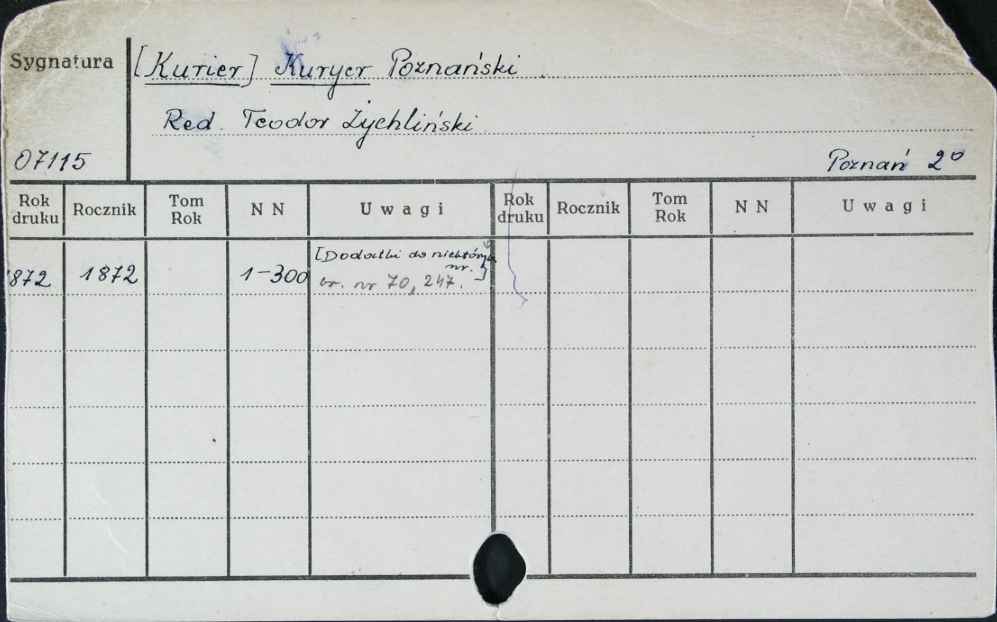 Sygnatura
[Kurier] Kuryer Poznański
Red. Teodor Żychliński
07115
Poznań 2°
Rok druku Rocznik Tom Rok N N Uwagi Rok druku Rocznik Tom Rok N N Uwagi
1872 1872 1-300 [Dodatki do niektórych
nr.]
br. nr 70, 247.